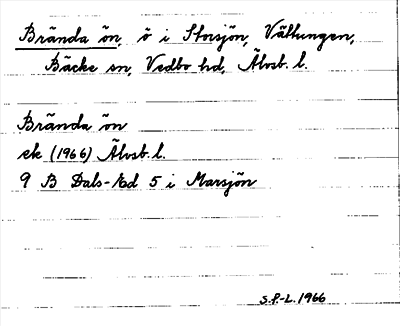 Brända ön, ö i Storsjön, Vättungen,
Bäcke sn, Vedbo hd, Älvsb. l.
Brända ön
ek (1966) Älvsb. l.
9 B Dals-Ed 5 i Marsjön
S.F.-L. 1966